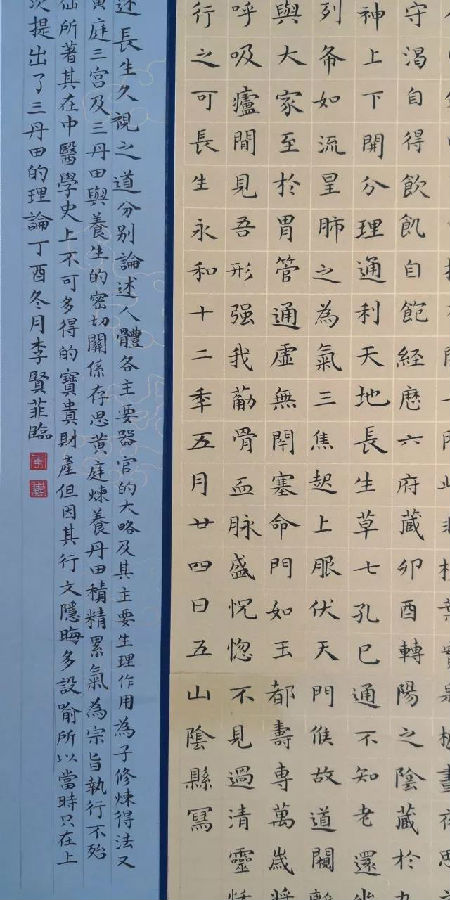 守渴自得飲飢自飽經歷六府藏卯酉轉陽之陰藏於九
神上下開分理通利天地長生草七孔已通不知老還坐
列布如流星肺之為氣三焦起上服伏天門候故道闚
與大家至於胃管通虛無閉塞命門如玉都壽專萬歲將
呼吸廬間見吾形强我筋骨血脉盛怳惚不見過清靈恬
行之可長生永和十二秊五月廿四日五山陰縣寫
述長生久視之道分別論述人體各主要器官的大略及其主要生理作用為子修煉得法又
黄庭三宫及三丹田與養生的密切關係存思黄庭煉養丹田積精累氣為宗旨執行不殆
仙所著其在中醫學史上不可多得的寶貴財產但因其行文隱晦多設喻所以當時只在上
次提出了三丹田的理論丁酉冬月李賢菲臨